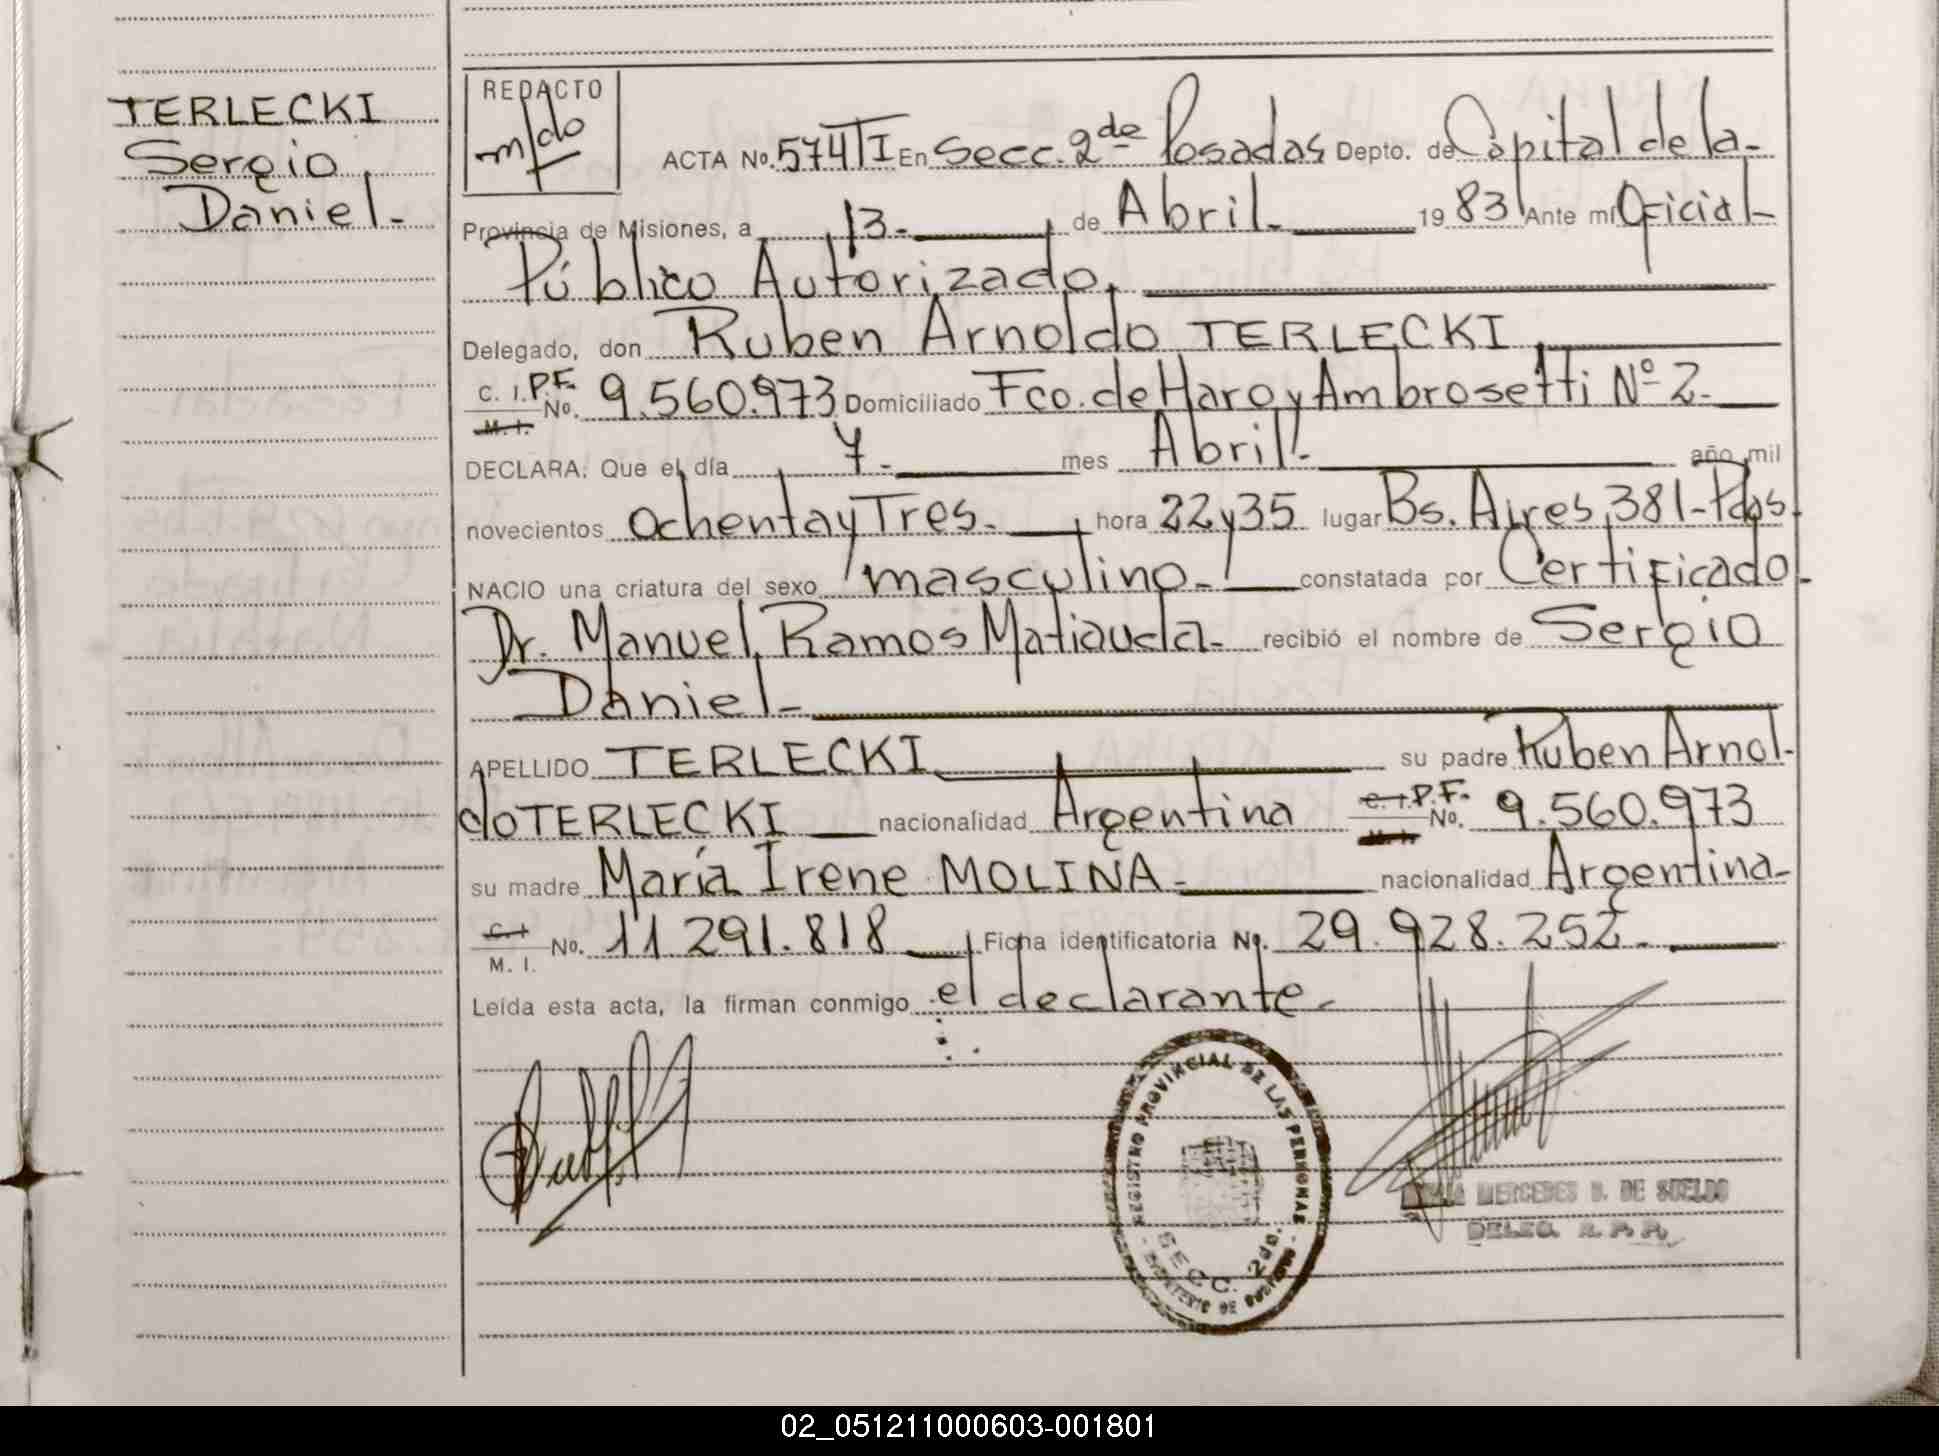 TERLECKI
Sergio
Daniel-
REDACTO
ACTA No. 574TI En Secc. 2da Posadas Depto. de Capital de la-
Provincia de Misiones, a 13- de Abril- 1983 Ante mí Oficial
Público Autorizado,
Delegado, don Ruben Arnoldo TERLECKI
C. I. P.F.
M. I. No. 9.560.973 Domiciliado Fco. de Haro y Ambrosetti Nº 2-
DECLARA: Que el día 7- mes Abril- año mil
novecientos ochenta y Tres- hora 22 y 35 lugar Bs. Aires 381-Pdas.
NACIO una criatura del sexo masculino- constatada por Certificado
Dr. Manuel Ramos Matiauda- recibió el nombre de Sergio
Daniel-
APELLIDO TERLECKI su padre Ruben Arnol-
do TERLECKI nacionalidad Argentina C. I. P.F. M. I. No. 9.560.973
su madre María Irene MOLINA- nacionalidad Argentina-
C. I. M. I. No. 11.291.818 Ficha identificatoria No. 29.928.252-
Leída esta acta, la firman conmigo el declarante.
REGISTRO PROVINCIAL DE LAS PERSONAS
SECC. 2da.
MERCEDES DE SUELDO
DELEG. R. P. P.
02_051211000603-001801